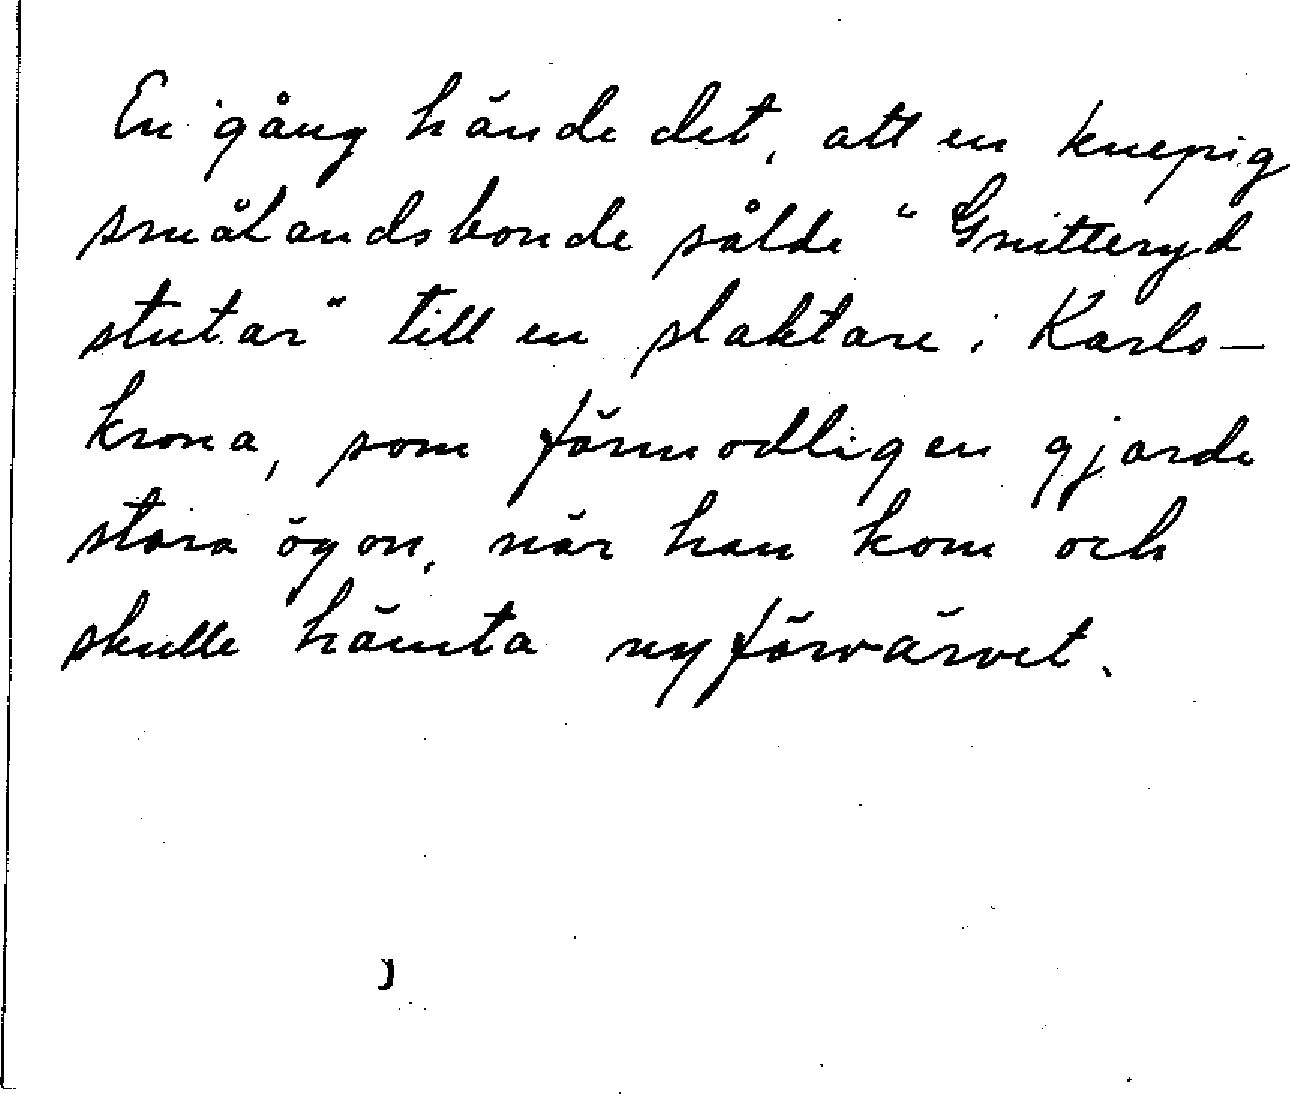 En gång hände det, att en knepig
smålandsbonde sålde "Gnitteryd
stutar" till en slaktare i Karls-
krona, som förmodligen gjorde
stora ögon, när han kom och
skulle hämta nyförvärvet.